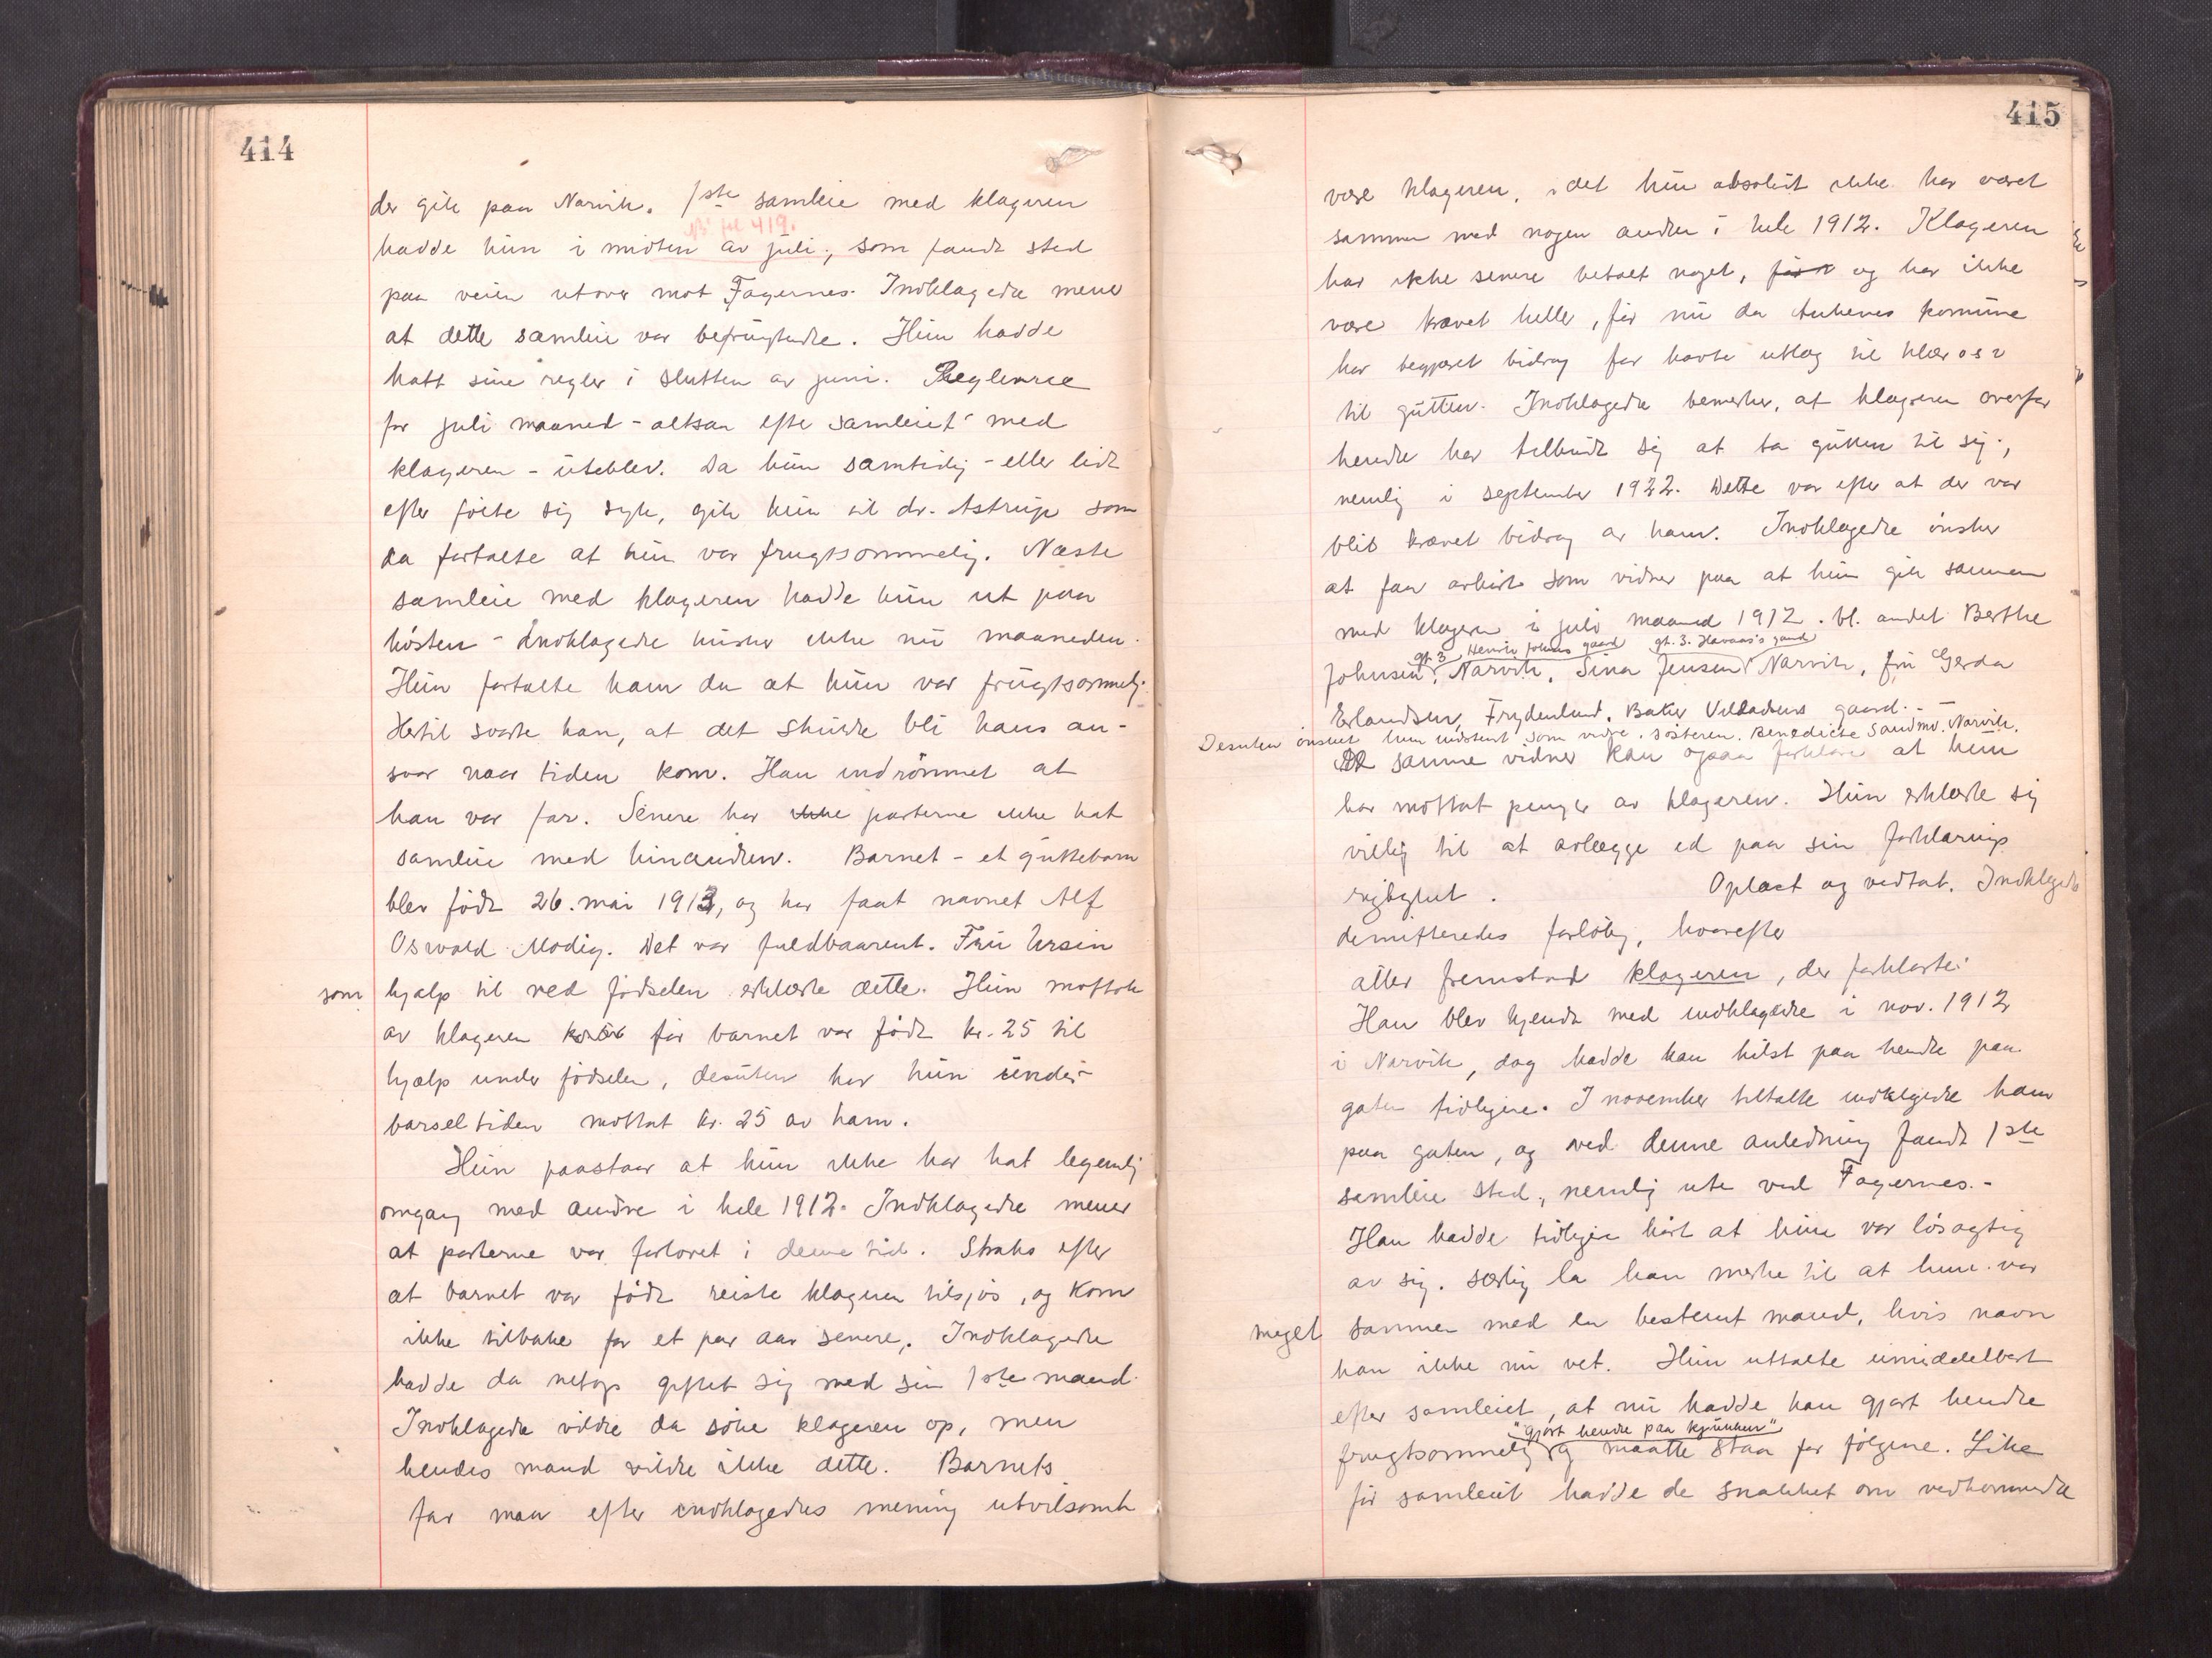 414
der gik paa Narvik. 1ste samleie med klageren
fol 419.
hadde hun i midten av juli, som fandt sted
paa veien utover mot Fagernes. Indklagede mener
at dette samleie var befrugtende. Hun hadde
hatt sine regler i slutten av juni. Reglerne
for juli maaned - altsaa efter samleiet med
klageren - uteblev. Da hun samtidig - eller lidt
efter følte sig syk, gik hun til dr. Astrup som
da fortalte at hun var frugtsommelig. Næste
samleie med klageren hadde hun ut paa
høsten - Indklagede husker ikke nu maaneden.
Hun fortalte ham da at hun var frugtsommelig.
Hertil svarte han, at det skulde bli hans an-
svar naar tiden kom. Han indrømmet at
han var far. Senere har ikke parterne ikke hat
samleie med hinanden. Barnet - et guttebarn
blev født 26. mai 1913, og har faat navnet Alf
Oswald Modig. Det var fuldbaarent. Fru Ursin
som hjalp til ved fødselen erklærte dette. Hun mottok
av klageren før barnet var født kr. 25 til
hjælp under fødselen, desuten har hun under
barseltiden mottat kr. 25 av ham.
Hun paastaar at hun ikke har hat legemlig
omgang med andre i hele 1912. Indklagede mener
at parterne var forlovet i denne tid. Straks efter
at barnet var født reiste klageren tilsjøs, og kom
ikke tilbake før et par aar senere. Indklagede
hadde da netop giftet sig med sin 1ste mand.
Indklagede vilde da søke klageren op, men
hendes mand vilde ikke dette. Barnets
far maa efter indklagedes mening utvilsomt
415
være klageren, idet hun absolut ikke har været
sammen med nogen anden i hele 1912. Klageren
har ikke senere betalt noget, før og har ikke
være krævet heller, før nu da Ankenes kommune
har begjæret bidrag for havte utlæg til klær osv
til gutten. Indklagede bemerker, at klageren overfor
hende har tilbudt sig at ta gutten til sig,
nemlig i september 1922. Dette var efter at der var
blit krævet bidrag av ham. Indklagede ønsker
at faa avhørt som vidner paa at hun gik sammen
med klageren i juli maaned 1912. bl. andet Berthe
gt. 3 Henrik Johns gaard gt. 3. Havaas's gaard
Johnsen, Narvik, Sina Jensen Narvik, fru Gerda
Erlandsen, Frydenlund, Baker Villadsens gaard. -
Desuten ønsket hun indstevnt som vidne, søsteren, Benedicte Sandmo, Narvik.
De samme vidner kan ogsaa forklare at hun
har mottat penger av klageren. Hun erklærte sig
villig til at avlægge ed paa sin forklarings
rigtighet. Oplæst og vedtat. Indklagede
demitteredes forløbig, hvorefter
atter fremstod klageren, der forklarte:
Han blev kjendt med indklagede i nov. 1912
i Narvik, dog hadde han hilst paa hende paa
gaten tidligere. I november tiltalte indklagede ham
paa gaten, og ved denne anledning fandt 1ste
samleie sted, nemlig ute ved Fagernes. -
Han hadde tidligere hørt at hun var løsagtig
av sig. Særlig la han merke til at hun var
meget sammen med en bestemt mand, hvis navn
han ikke nu vet. Hun uttalte umiddelbart
efter samleiet, at nu hadde han gjort hende
"gjort hende paa kjukken"
frugtsommelig og maatte staa for følgene. Like
før samleiet hadde de snakket om vedkommende